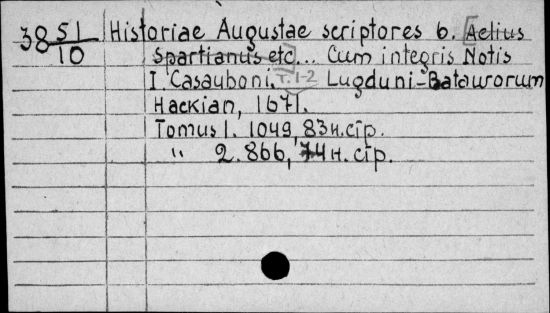 38 51/10 Historiae Augustae scriptores 6. [Aelius
Spartianus etc]... Cum integris Notis
I. Casauboni. T. 1-2 Lugduni-Bataworum
Hackian, 1671.
Tomus 1. 1049, 83 н. стр.
" 2. 866, 74 н. стр.